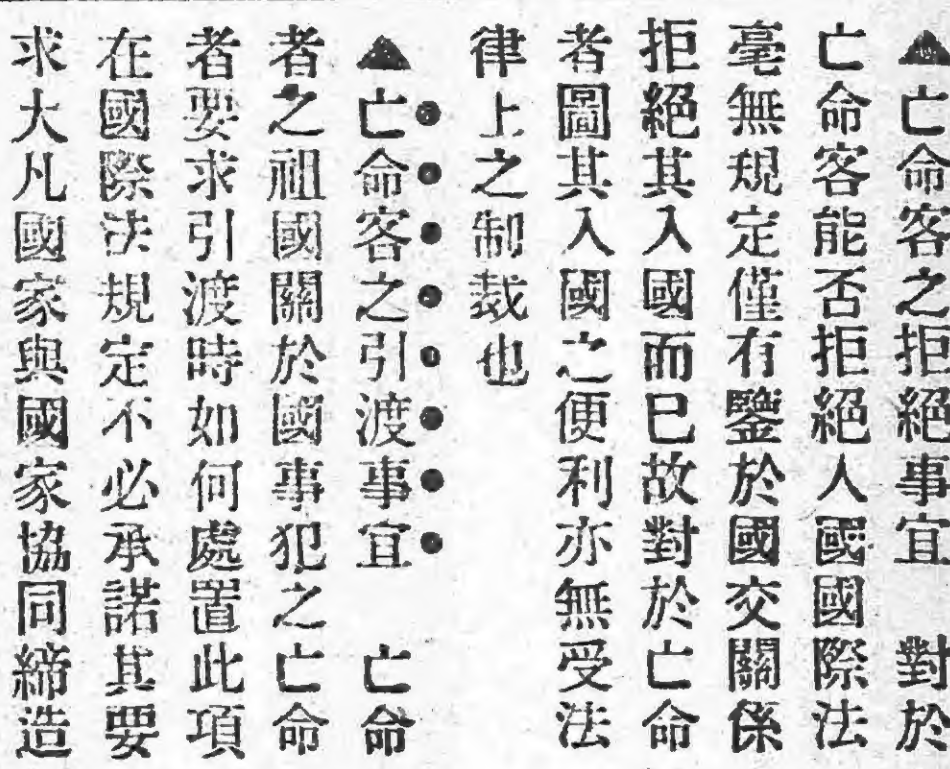 ▲亡命客之拒絕事宜　對於
亡命客能否拒絕人國國際法
毫無規定僅有鑒於國交關係
拒絕其入國而已故對於亡命
者圖其入國之便利亦無受法
律上之制裁也
▲亡命客之引渡事宜　亡命
者之祖國關於國事犯之亡命
者要求引渡時如何處置此項
在國際法規定不必承諾其要
求大凡國家與國家協同締造